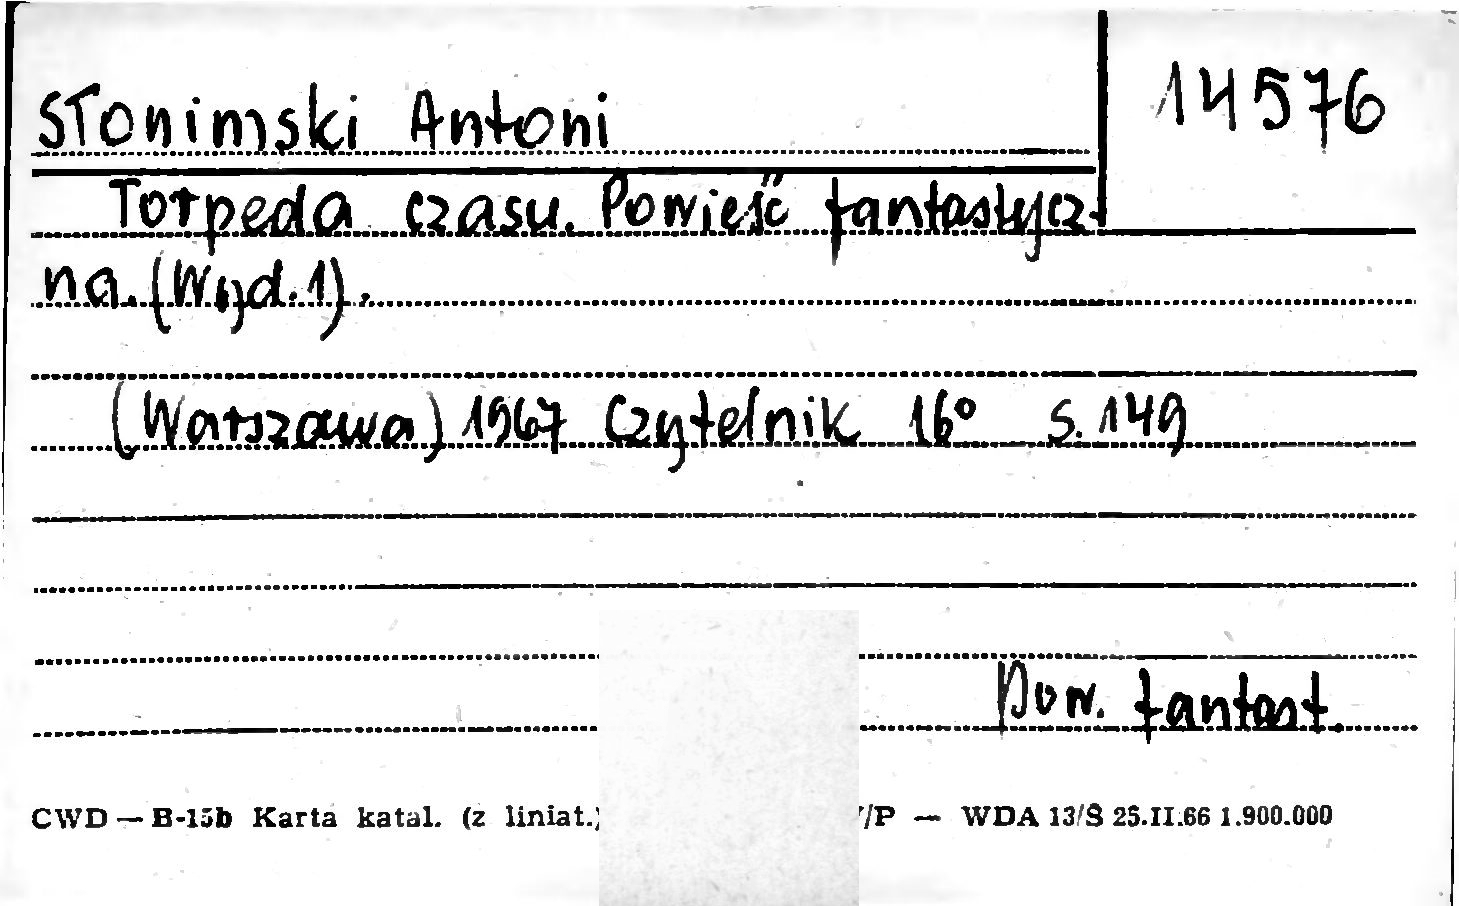 Słonimski Antoni
14576
Torpeda czasu. Powieść fantastycz-
na. (Wyd. 1).
(Warszawa) 1967 Czytelnik 16° s. 149
Pow. fantast.
CWD — B-15b Karta katal. (z liniat.) /P — WDA 13/S 25.II.66 1.900.000